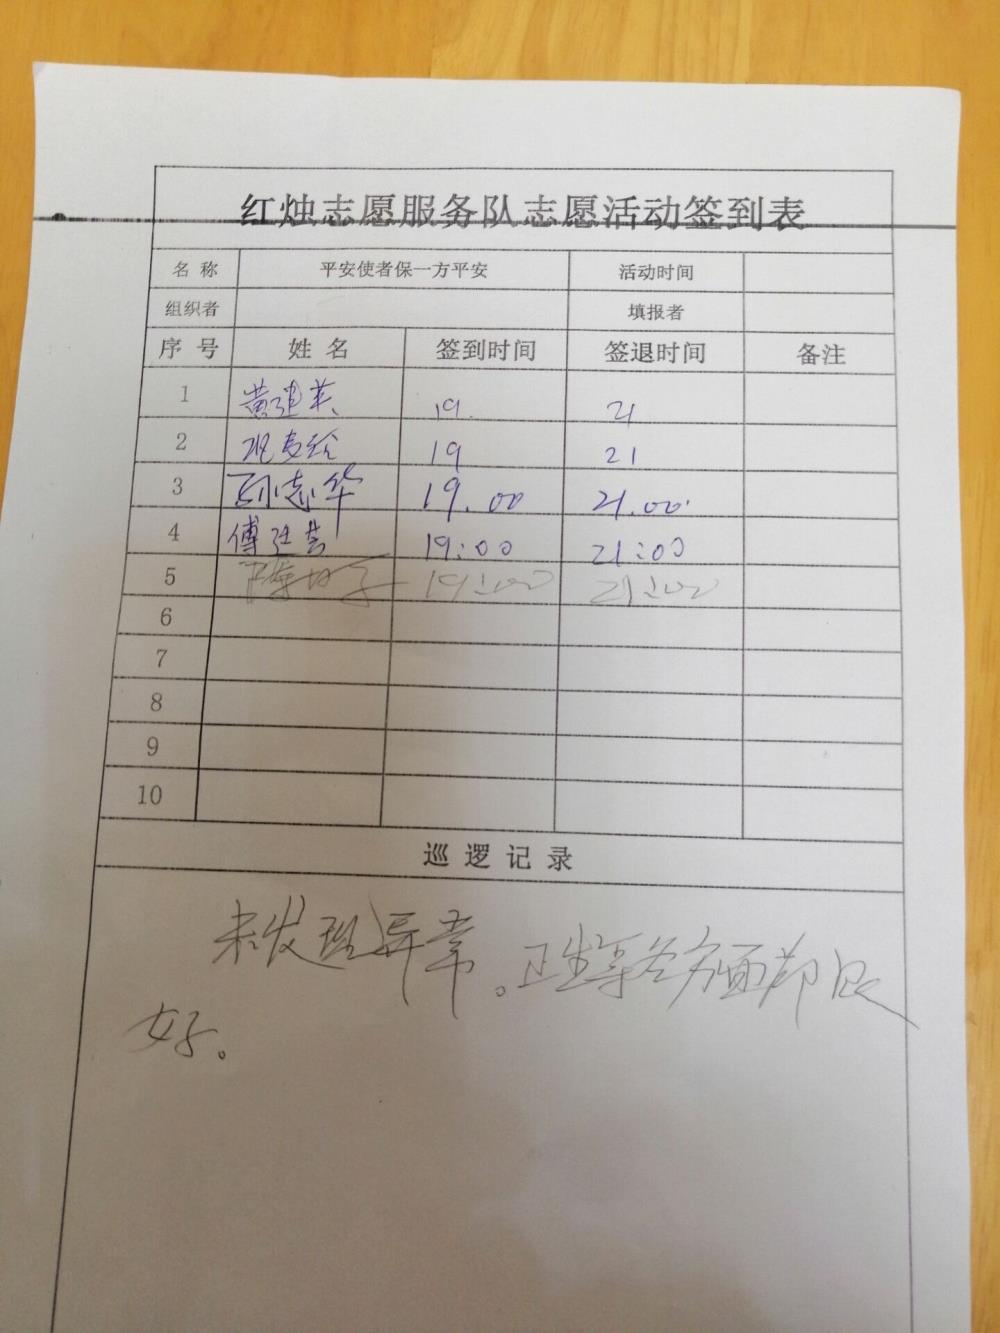 红烛志愿服务队志愿活动签到表
名称 平安使者保一方平安 活动时间
组织者 填报者
序号 姓名 签到时间 签退时间 备注
1 黄 英 19. 21
2 19 21
3 孙志华 19.00 21.00
4 傅 芸 19:00 21:00
5 陈 子 19:00 21:00
6
7
8
9
10
巡逻记录
未发现异常。卫生等各方面都良
好。